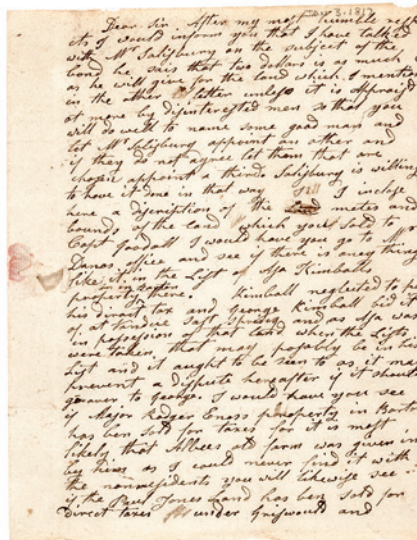 May 3. 1817
Dear Sir After my most humble resp
its I would inform you that I have talked
with Mr Salisbury on the subject of the
bond he sais that two dollars is as much
as he will give for the land which I mentiond
in the other letter unless it is appraisd
at more by disinterested men so that you
will do well to name some good man and
let Mr Salisbury appoint an other and
if they do not agree let them that are
chosen appoint a third. Salisbury is willing
to have it done in that way I inclose
here a discription of the metes and
bounds of the land which you sold to
Capt Goodall I would have you go to Mr
Danas office and see if there is any thing
like it in the List of Asa Kimballs
property there. Kimball neglected to pay
his direct tax and George Kimball bid it
of at vandue last Spring and as Asa was
in possession of that land when the Lists
were taken, that may posably be in his
List and it aught to be seen to as it may
prevent a dispute hereafter if it should
go over to George. I would have you see
if Major Roger Enoss property in Barton
has ben sold for taxes for it is most
likely that old farm was given in
by him as I could never find it with
the nonresidents you will likewise see
if the Paul Jones Land has ben sold for
Direct taxes under Griswould and